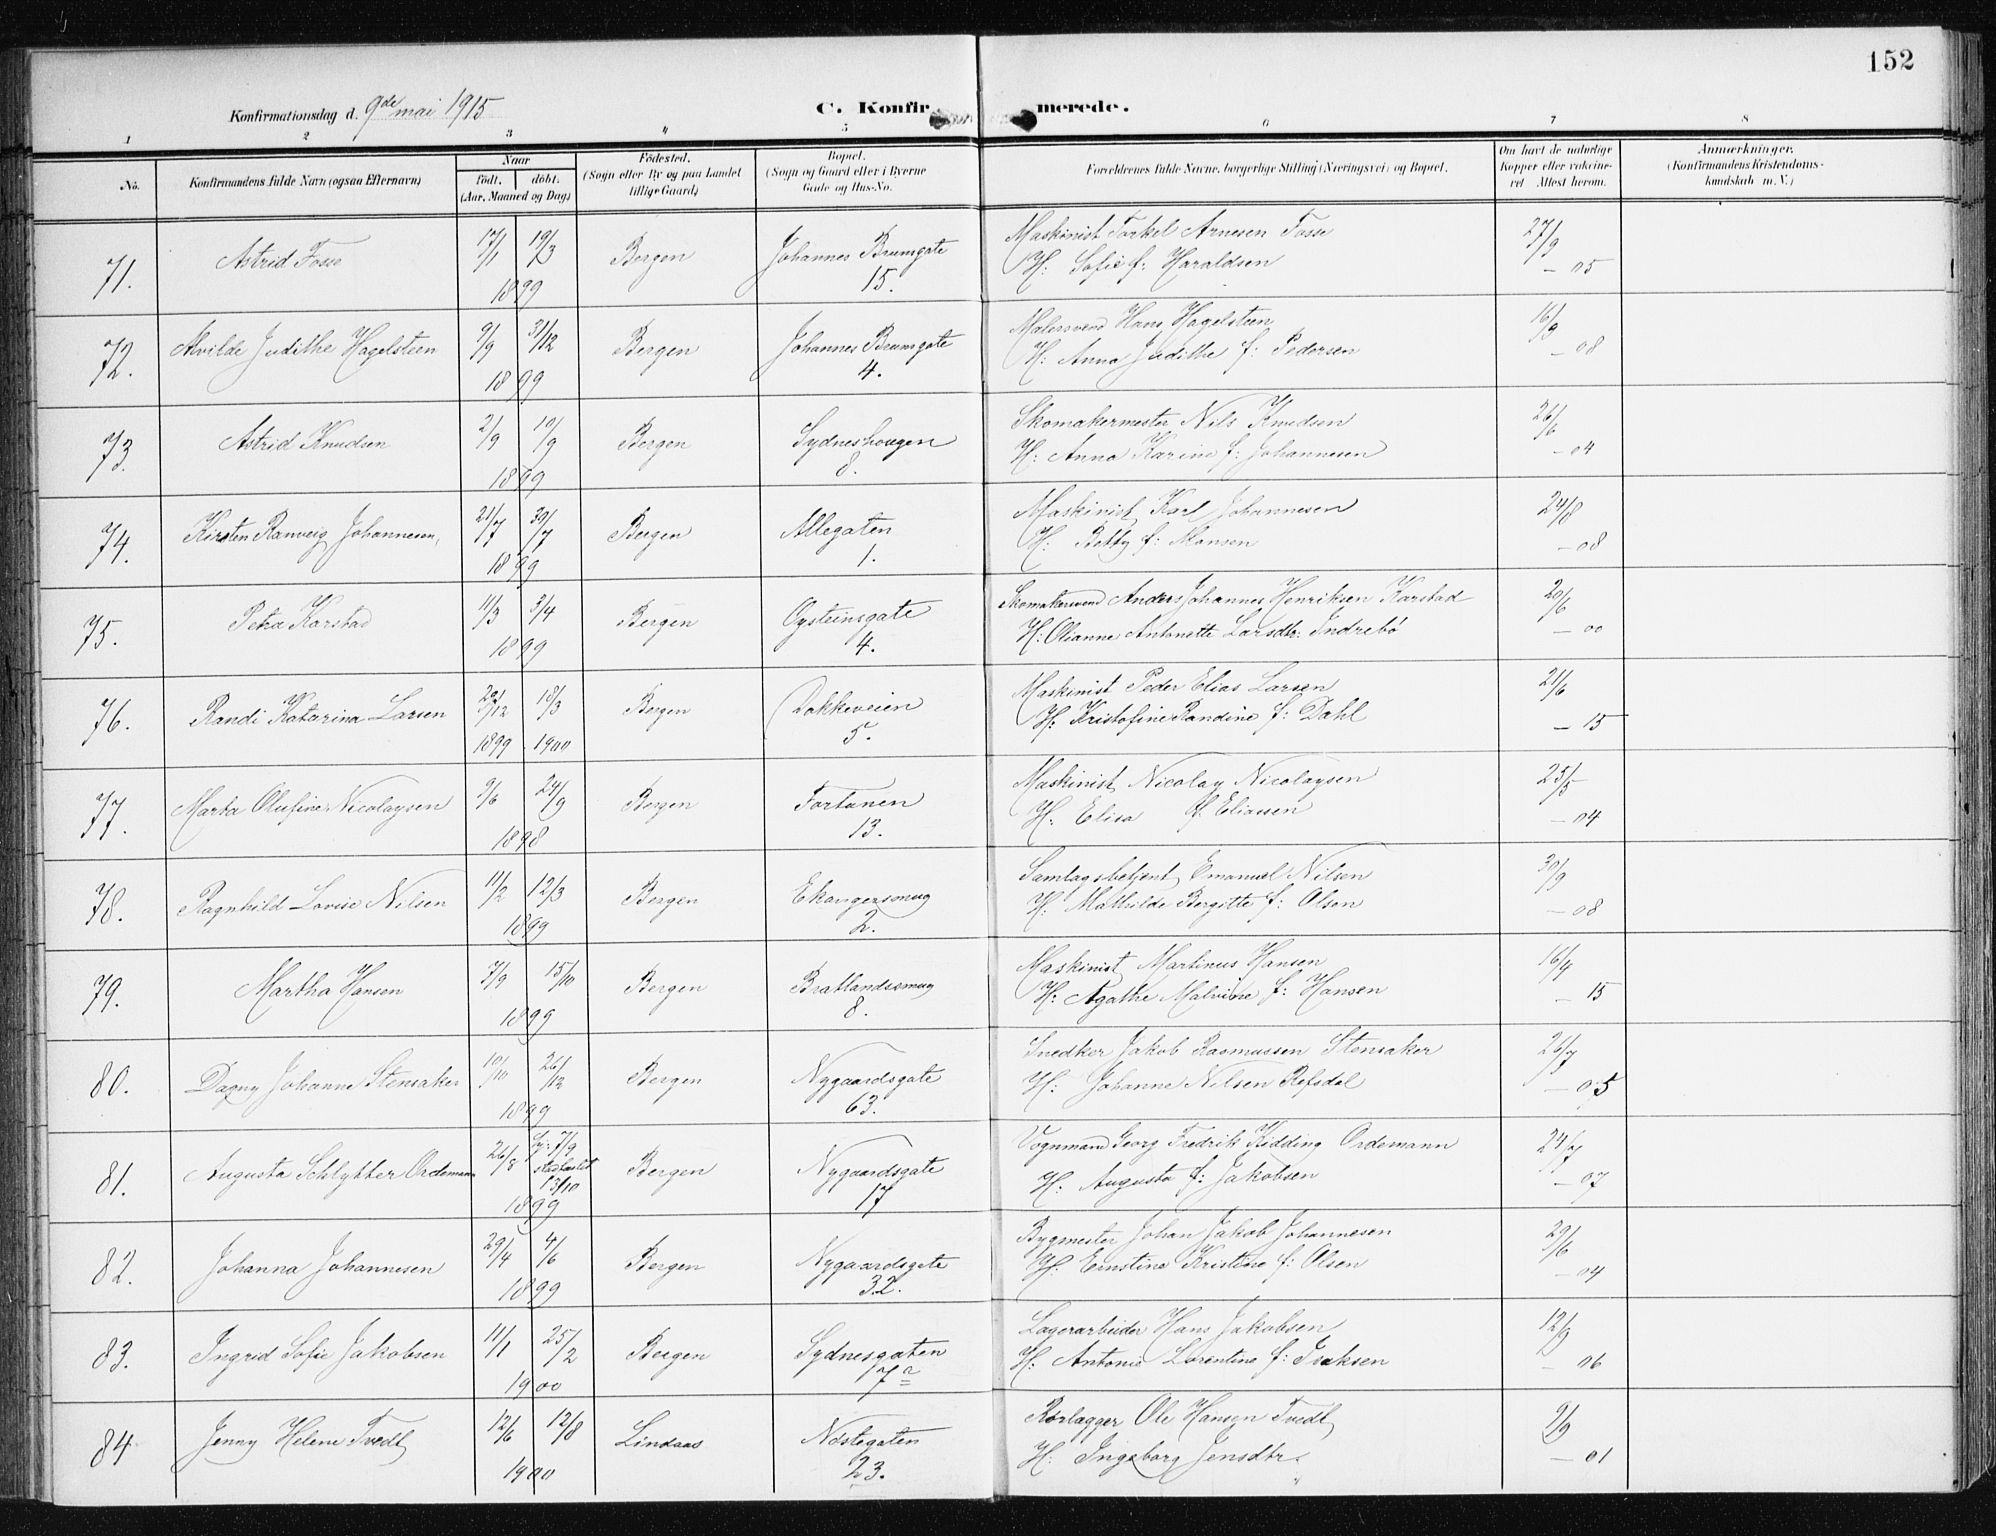 152
Konfirmationsdag d. 9de mai 1915 C. Konfirmerede.
1 2 3 4 5 6 7 8
No. Konfirmandens fulde Navn (ogsaa Efternavn) Naar født, døbt. (Aar, Maaned og Dag) Fødested. (Sogn eller By og paa Landet tillige Gaard) Bopæl. (Sogn og Gaard eller i Byerne Gade og Hus-No. Forældrenes fulde Navne, borgerlige Stilling (Næringsvei) og Bopæl. Om havt de naturlige Kopper eller vaccineret. Attest herom. Anmærkninger. (Konfirmandens Kristendomskundskab m. V.)
71. Astrid Fosse 17/1 19/3 1899 Bergen Johannes Brunsgate 15. Maskinist Torkel Arnesen Fosse
H: Sofie f: Haraldsen 27/9 – 05
72. Alvilde Judithe Hagelsteen 9/9 31/12 1899 Bergen Johannes Brunsgate 4. Malersvend Hans Hagelsteen
H: Anna Judithe f: Pedersen 16/9 – 08
73. Astrid Knudsen 2/9 10/9 1899 Bergen Sydneshougen 8. Skomakermester Nils Knudsen
H: Anna Karine f: Johannesen 26/6 – 04
74. Kirsten Ranveig Johannesen, 21/7 30/7 1899 Bergen Allegaten 1. Maskinist Karl Johannesen
H: Betty f: Monsen 24/8 – 08
75. Petra Karstad 11/3 3/4 1899 Bergen Øysteinsgate 4. Skomakersvend Anders Johannes Henriksen Karstad
H: Olianne Antonette Larsdtr. Indrebø 20/6 – 00
76. Randi Katarina Larsen 29/12 1899 18/3 1900 Bergen Dokkeveien 5. Maskinist Peder Elias Larsen
H: Kristofine Randine f: Dahl 21/6 – 15
77. Marta Olufine Nicolaysen 9/6 24/9 1898 Bergen Fortunen 13. Maskinist Nicolay Nicolaysen
H: Elisa f. Eliassen 25/5 – 04
78. Ragnhild Lovise Nilsen 11/2 12/3 1899 Bergen Ekangersmug 2. Samlagsbetjent Emanuel Nilsen
H: Mathilde Bergitte f: Olsen 30/9 – 08
79. Martha Hansen 7/9 15/10 1899 Bergen Bratlandssmug 8. Maskinist Martinus Hansen
H: Agathe Malvine f: Hansen 16/4 – 15
80. Dagny Johanne Stensaker 10/10 26/12 1899 Bergen Nygaardsgate 63. Snedker Jakob Rasmussen Stensaker
H: Johanne Nilsen Refsdal 26/7 – 05
81. Augusta Schlytter Ordemann 26/8 hj: 7/9 stadfæstet 13/10 1899 Bergen Nygaardsgate 17 Vognmand Georg Fredrik Kidding Ordemann
H: Augusta f: Jakobsen 24/7 – 07
82. Johanna Johannesen 29/4 4/6 1899 Bergen Nygaardsgate 32. Bygmester Johan Jakob Johannesen
H: Ernstine Kristine f: Olsen 29/6 – 04
83. Ingrid Sofie Jakobsen 11/1 25/2 1900 Bergen Sydnesgaten 7a Lagerarbeider Hans Jakobsen
H: Antonie Lorentine f: Isaksen 12/9 – 06
84. Jenny Helene Tvedt 12/6 12/8 1900 Lindaas Nøstegaten 23. Rørlægger Ole Hansen Tvedt
H: Ingeborg Jensdtr. 9/9 – 01